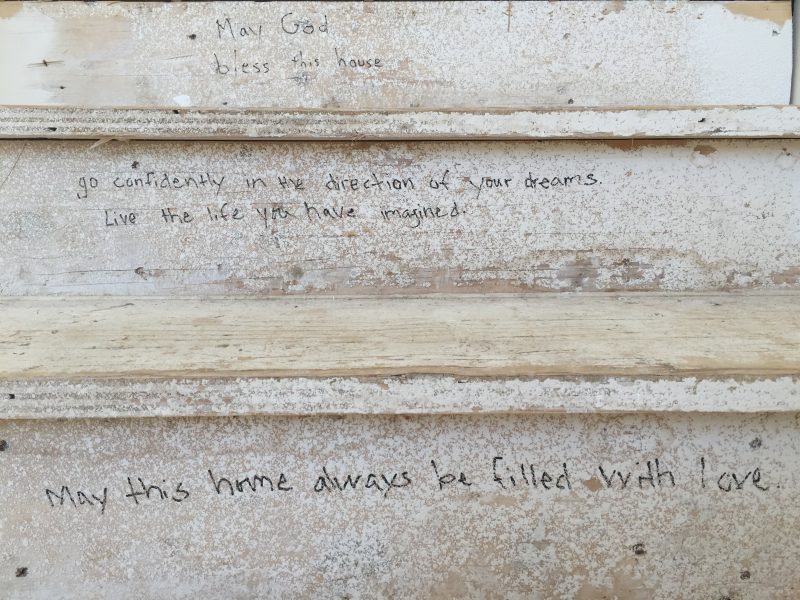 May God
bless this house
go confidently in the direction of your dreams.
Live the life you have imagined.
May this home always be filled with love.